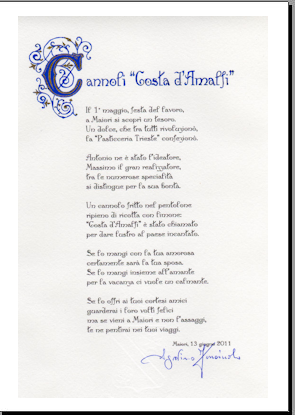 Cannoli "Costa d'Amalfi"
Il 1° maggio, festa del lavoro,
a Maiori si scoprì un tesoro.
Un dolce, che tra tutti rivoluzionò,
la "Pasticceria Trieste" confezionò.
Antonio ne è stato l'ideatore,
Massimo il gran realizzatore,
tra le numerose specialità
si distingue per la sua bontà.
Un cannolo fritto nel pentolone
ripieno di ricotta con limone:
"Costa d'Amalfi" è stato chiamato
per dare lustro al paese incantato.
Se lo mangi con la tua amorosa
certamente sarà la tua sposa.
Se lo mangi insieme all'amante
per la vacanza ci vuole un calmante.
Se lo offri ai tuoi cortesi amici
guarderai i loro volti felici
ma se vieni a Maiori e non l'assaggi,
te ne pentirai nei tuoi viaggi.
Maiori, 13 giugno 2011